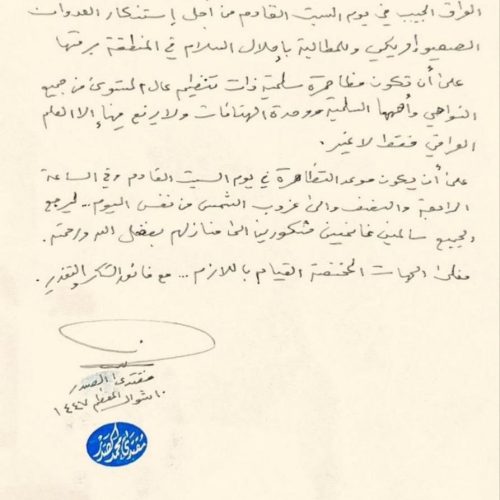 العراق الحبيب في يوم السبت القادم من أجل إستنكار العدوان
الصهيو أمريكي وللمطالبة بإحلال السلام في المنطقة برمتها
على أن تكون مظاهرة سلمية ذات تنظيم عال المستوى من جميع
النواحي وأهمها السلمية ووحدة الهتافات ولا يرفع فيها إلا العلم
العراقي فقط لا غير.
على أن يكون موعد التظاهرة في يوم السبت القادم وفي الساعة
الرابعة والنصف والى غروب الشمس من نفس اليوم .. ليرجع
الجميع سالمين غانمين مشكورين الى منازلهم بفضل الله ورحمته.
فعلى الجهات المختصة القيام باللازم ... مع فائق الشكر والتقدير.
مقتدى الصدر
١٠ شوال المعظم ١٤٤٧
مقتدى محمد الصدر